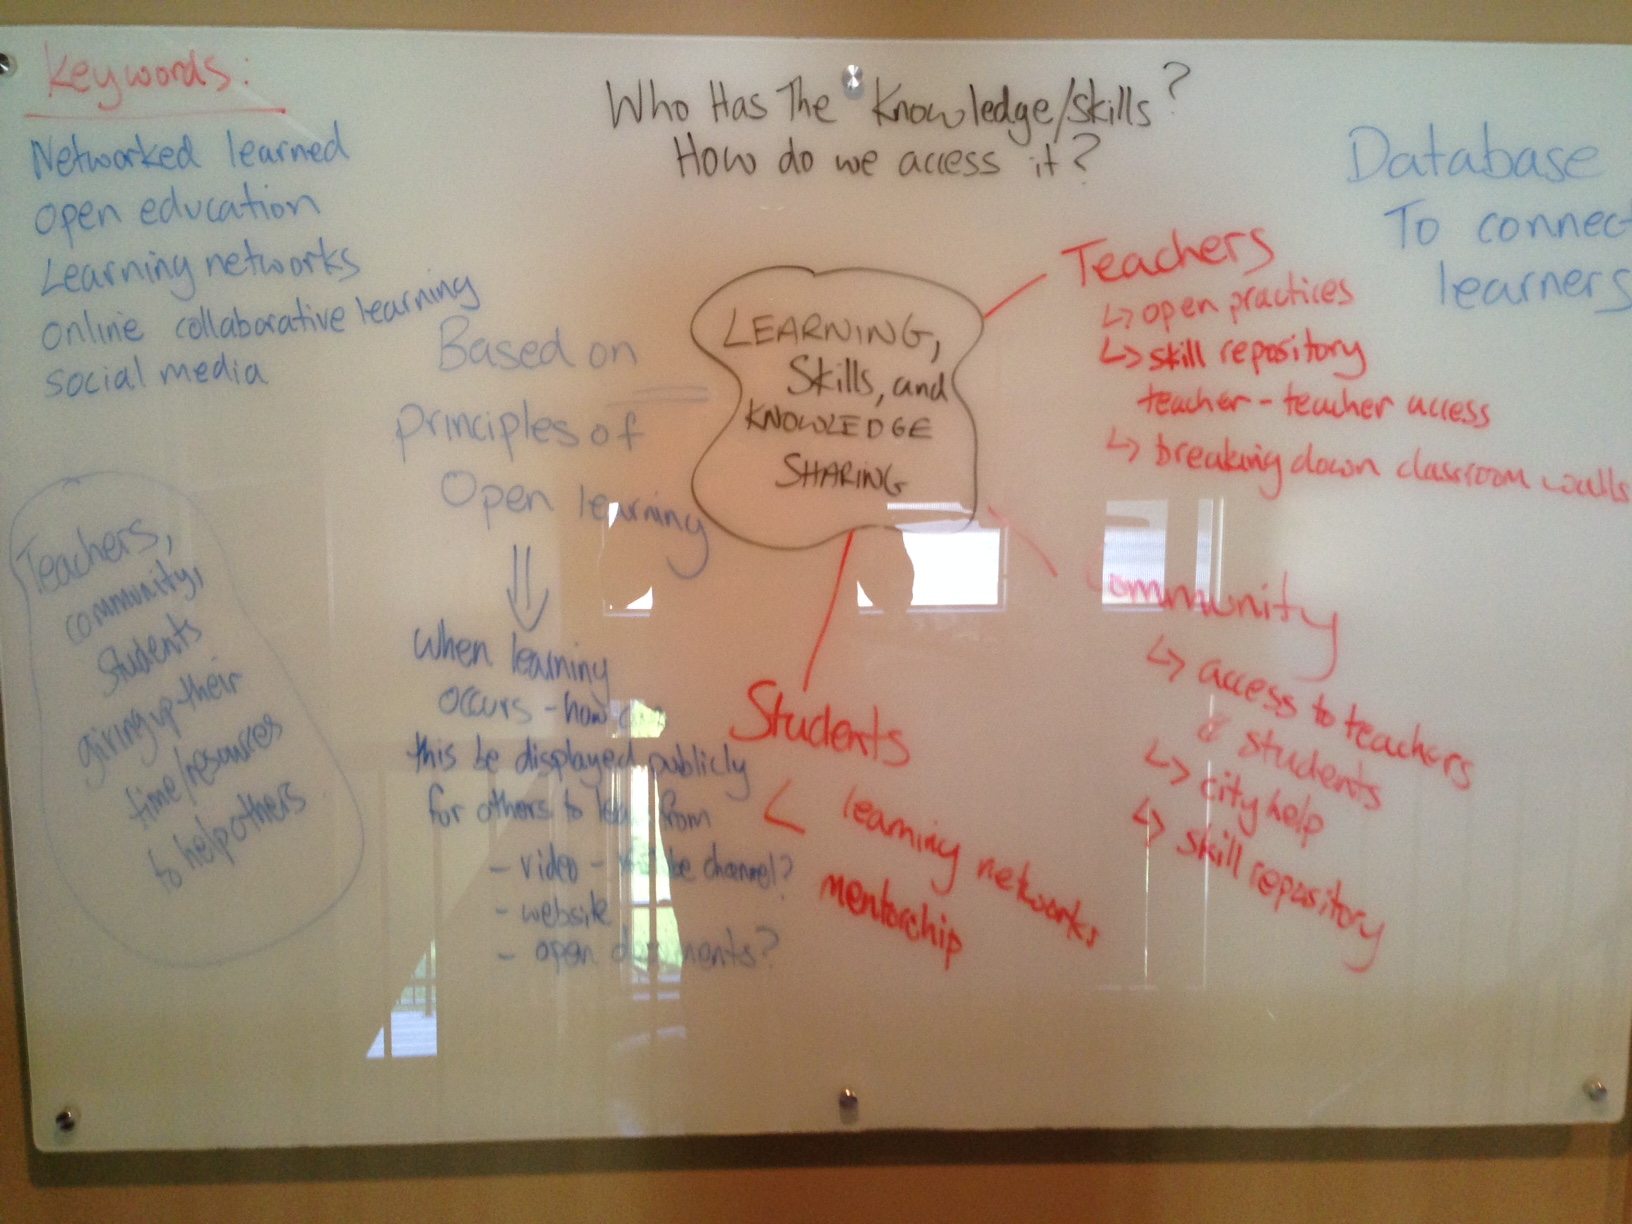 Keywords:
Networked learned
open education
Learning networks
online collaborative learning
social media
Who Has The Knowledge/skills?
How do we access it?
Database
To connect
learners
LEARNING,
Skills, and
KNOWLEDGE
SHARING
Teachers
↳ open practices
↳ skill repository
teacher - teacher access
↳ breaking down classroom walls
Based on
principles of
Open learning
When learning
occurs - how can
this be displayed publicly
for others to learn from
- video - channel?
- website
- open documents?
Teachers,
community,
students
giving up their
time/resources
to help others
Students
learning networks
mentorship
Community
↳ access to teachers
& students
↳ city help
↳ skill repository